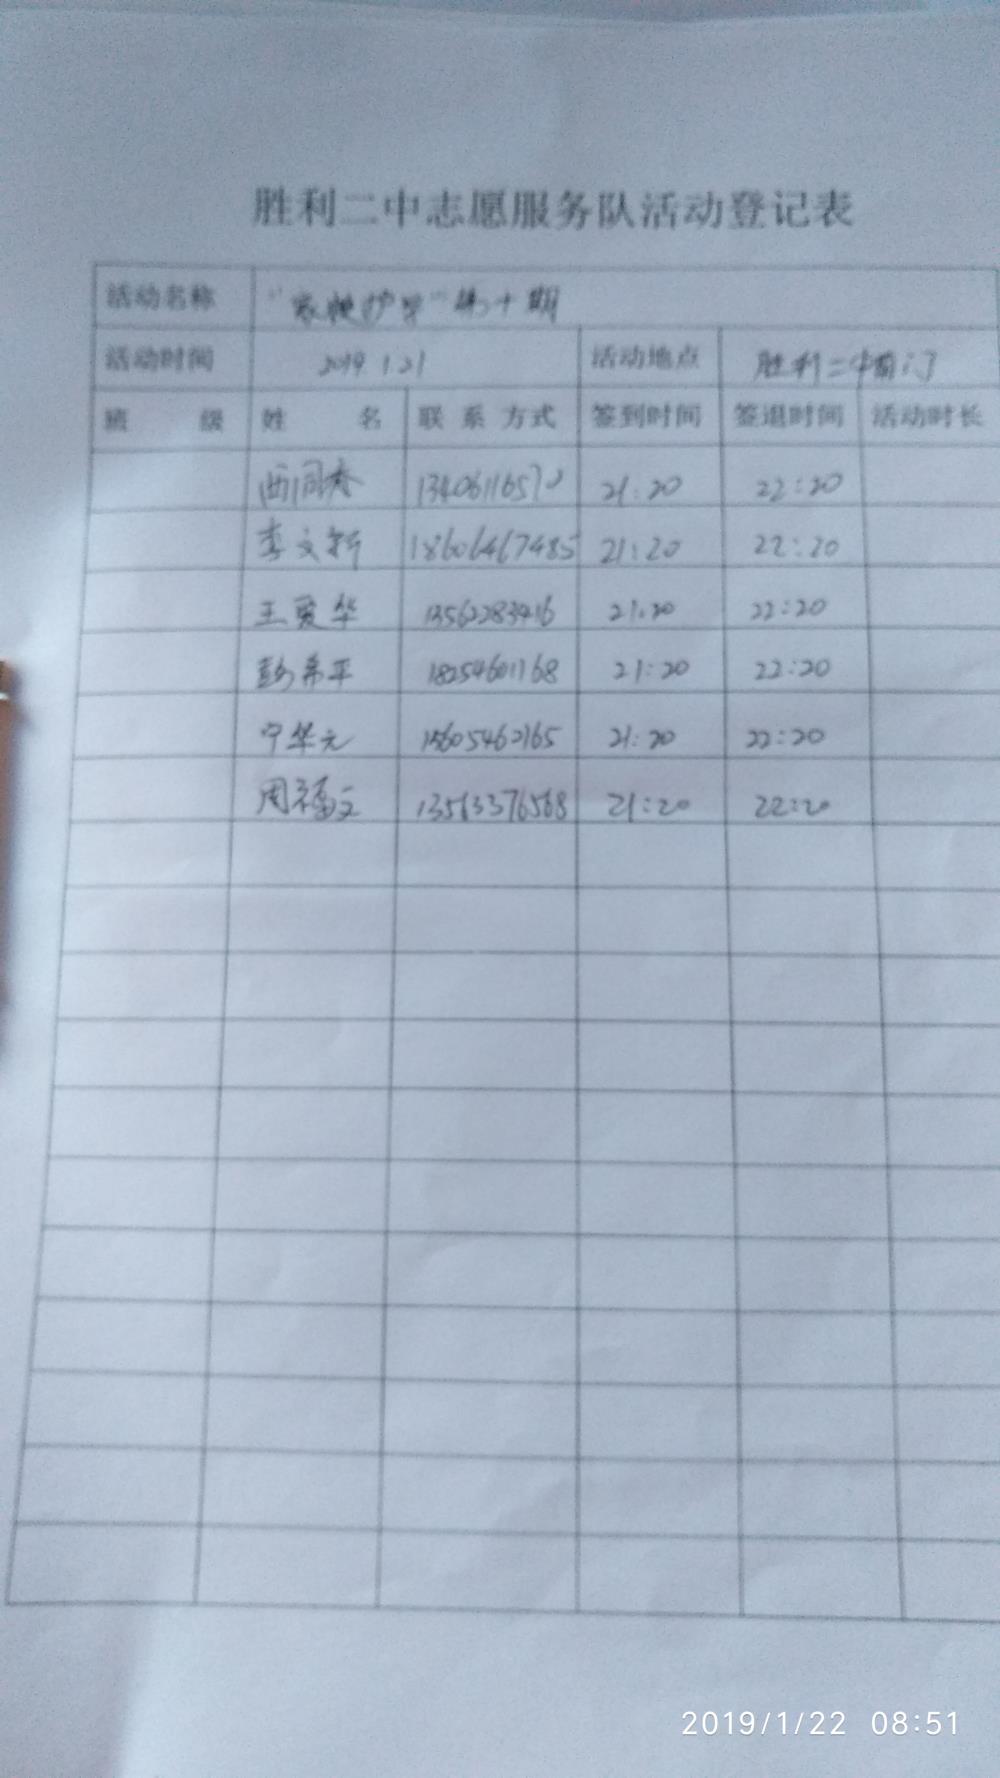 胜利二中志愿服务队活动登记表
活动名称 "家校护导"第十期
活动时间 2019.1.21 活动地点 胜利二中南门
班 级 姓 名 联系方式 签到时间 签退时间 活动时长
21:20 22:20
李文新 18606467485 21:20 22:20
王爱华 13562283416 21:20 22:20
彭希平 18254601168 21:20 22:20
宁华元 15605462165 21:20 22:20
周福文 13563376568 21:20 22:20
2019/1/22 08:51